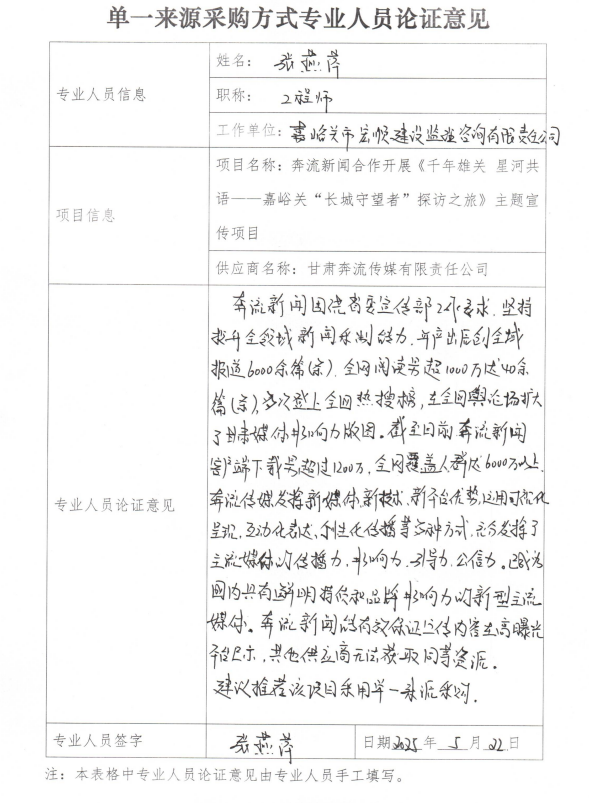 单一来源采购方式专业人员论证意见
专业人员信息
姓名： 张燕萍
职称： 工程师
工作单位：嘉峪关市宏顺建设监理咨询有限责任公司
项目信息
项目名称：奔流新闻合作开展《千年雄关 星河共
语——嘉峪关“长城守望者”探访之旅》主题宣
传项目
供应商名称：甘肃奔流传媒有限责任公司
专业人员论证意见
奔流新闻围绕省委宣传部工作要求，坚持
提升全领域新闻采测能力，年产出原创全域
报道6000余篇（条），全网阅读量超1000万达40余
篇（条），多次登上全网热搜榜，在全网舆论场扩大
了甘肃媒体影响力版图。截至目前奔流新闻
客户端下载量超过1200万，全网覆盖人群达6000万以上。
奔流传媒发挥新媒体、新技术、新平台优势，运用可视化
呈现、互动化表达、个性化传播等多种方式，充分发挥了
主流媒体的传播力、影响力、引导力、公信力。已成为
国内具有鲜明特质和品牌影响力的新型主流
媒体。奔流新闻能有效保证宣传内容在高曝光
平台展示，其他供应商无法获取同等资源。
建议推荐该项目采用单一来源采购。
专业人员签字
张燕萍
日期2025年 5 月 22 日
注：本表格中专业人员论证意见由专业人员手工填写。